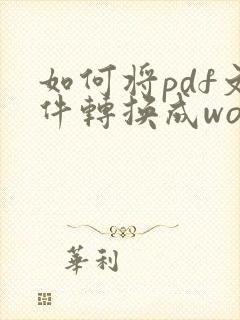 如何將pdf文
件轉換成wo
華利